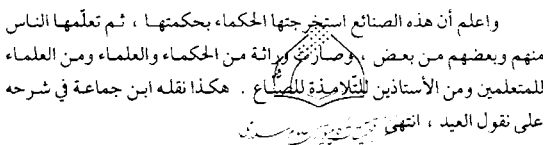 واعلم أن هذه الصنائع استخرجتها الحكماء بحكمتها ، ثم تعلّمها الناس
منهم وبعضهم من بعض ، وصارت وراثة من الحكماء والعلماء ومن العلماء
للمتعلمين ومن الأستاذين للتّلامـذة للصنّاع . هكذا نقله ابن جماعة في شرحه
على نقول العيد ، انتهى